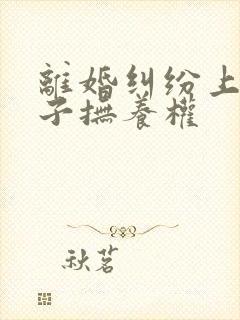 離婚糾纷上
子撫養權
秋茗